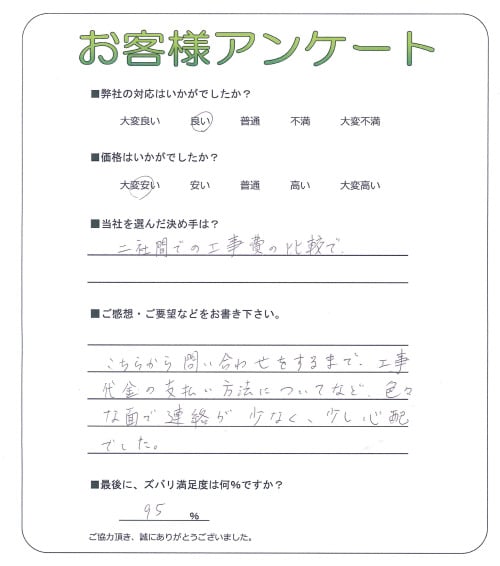 お客様アンケート
■弊社の対応はいかがでしたか？
大変良い 良い 普通 不満 大変不満
■価格はいかがでしたか？
大変安い 安い 普通 高い 大変高い
■当社を選んだ決め手は？
二社間での工事費の比較で、
■ご感想・ご要望などをお書き下さい。
こちらから問い合わせをするまで、工事
代金の支払い方法についてなど、色々
な面で連絡が少なく、少し心配
でした。
■最後に、ズバリ満足度は何％ですか？
95 ％
ご協力頂き、誠にありがとうございました。